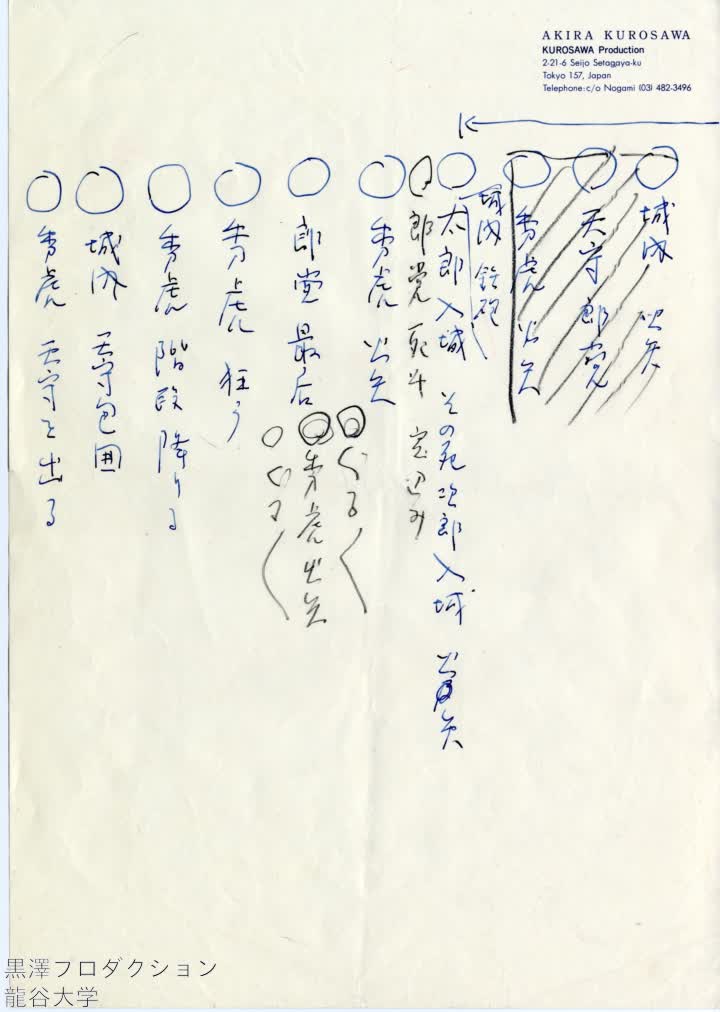 AKIRA KUROSAWA
KUROSAWA Production
2-21-6 Seijo Setagaya-ku
Tokyo 157, Japan
Telephone: c/o Nogami (03) 482-3496
城内 火矢
天守 郎党
秀虎 火矢
城内 鉄砲
太郎 入城 その死 次郎 入城 火矢
郎党 死斗
秀虎 火矢
郎党 最后
秀虎 狂う
秀虎 階段 降りる
城内 天守包囲
秀虎 天守を出る
秀虎 火矢
黒澤プロダクション
龍谷大学